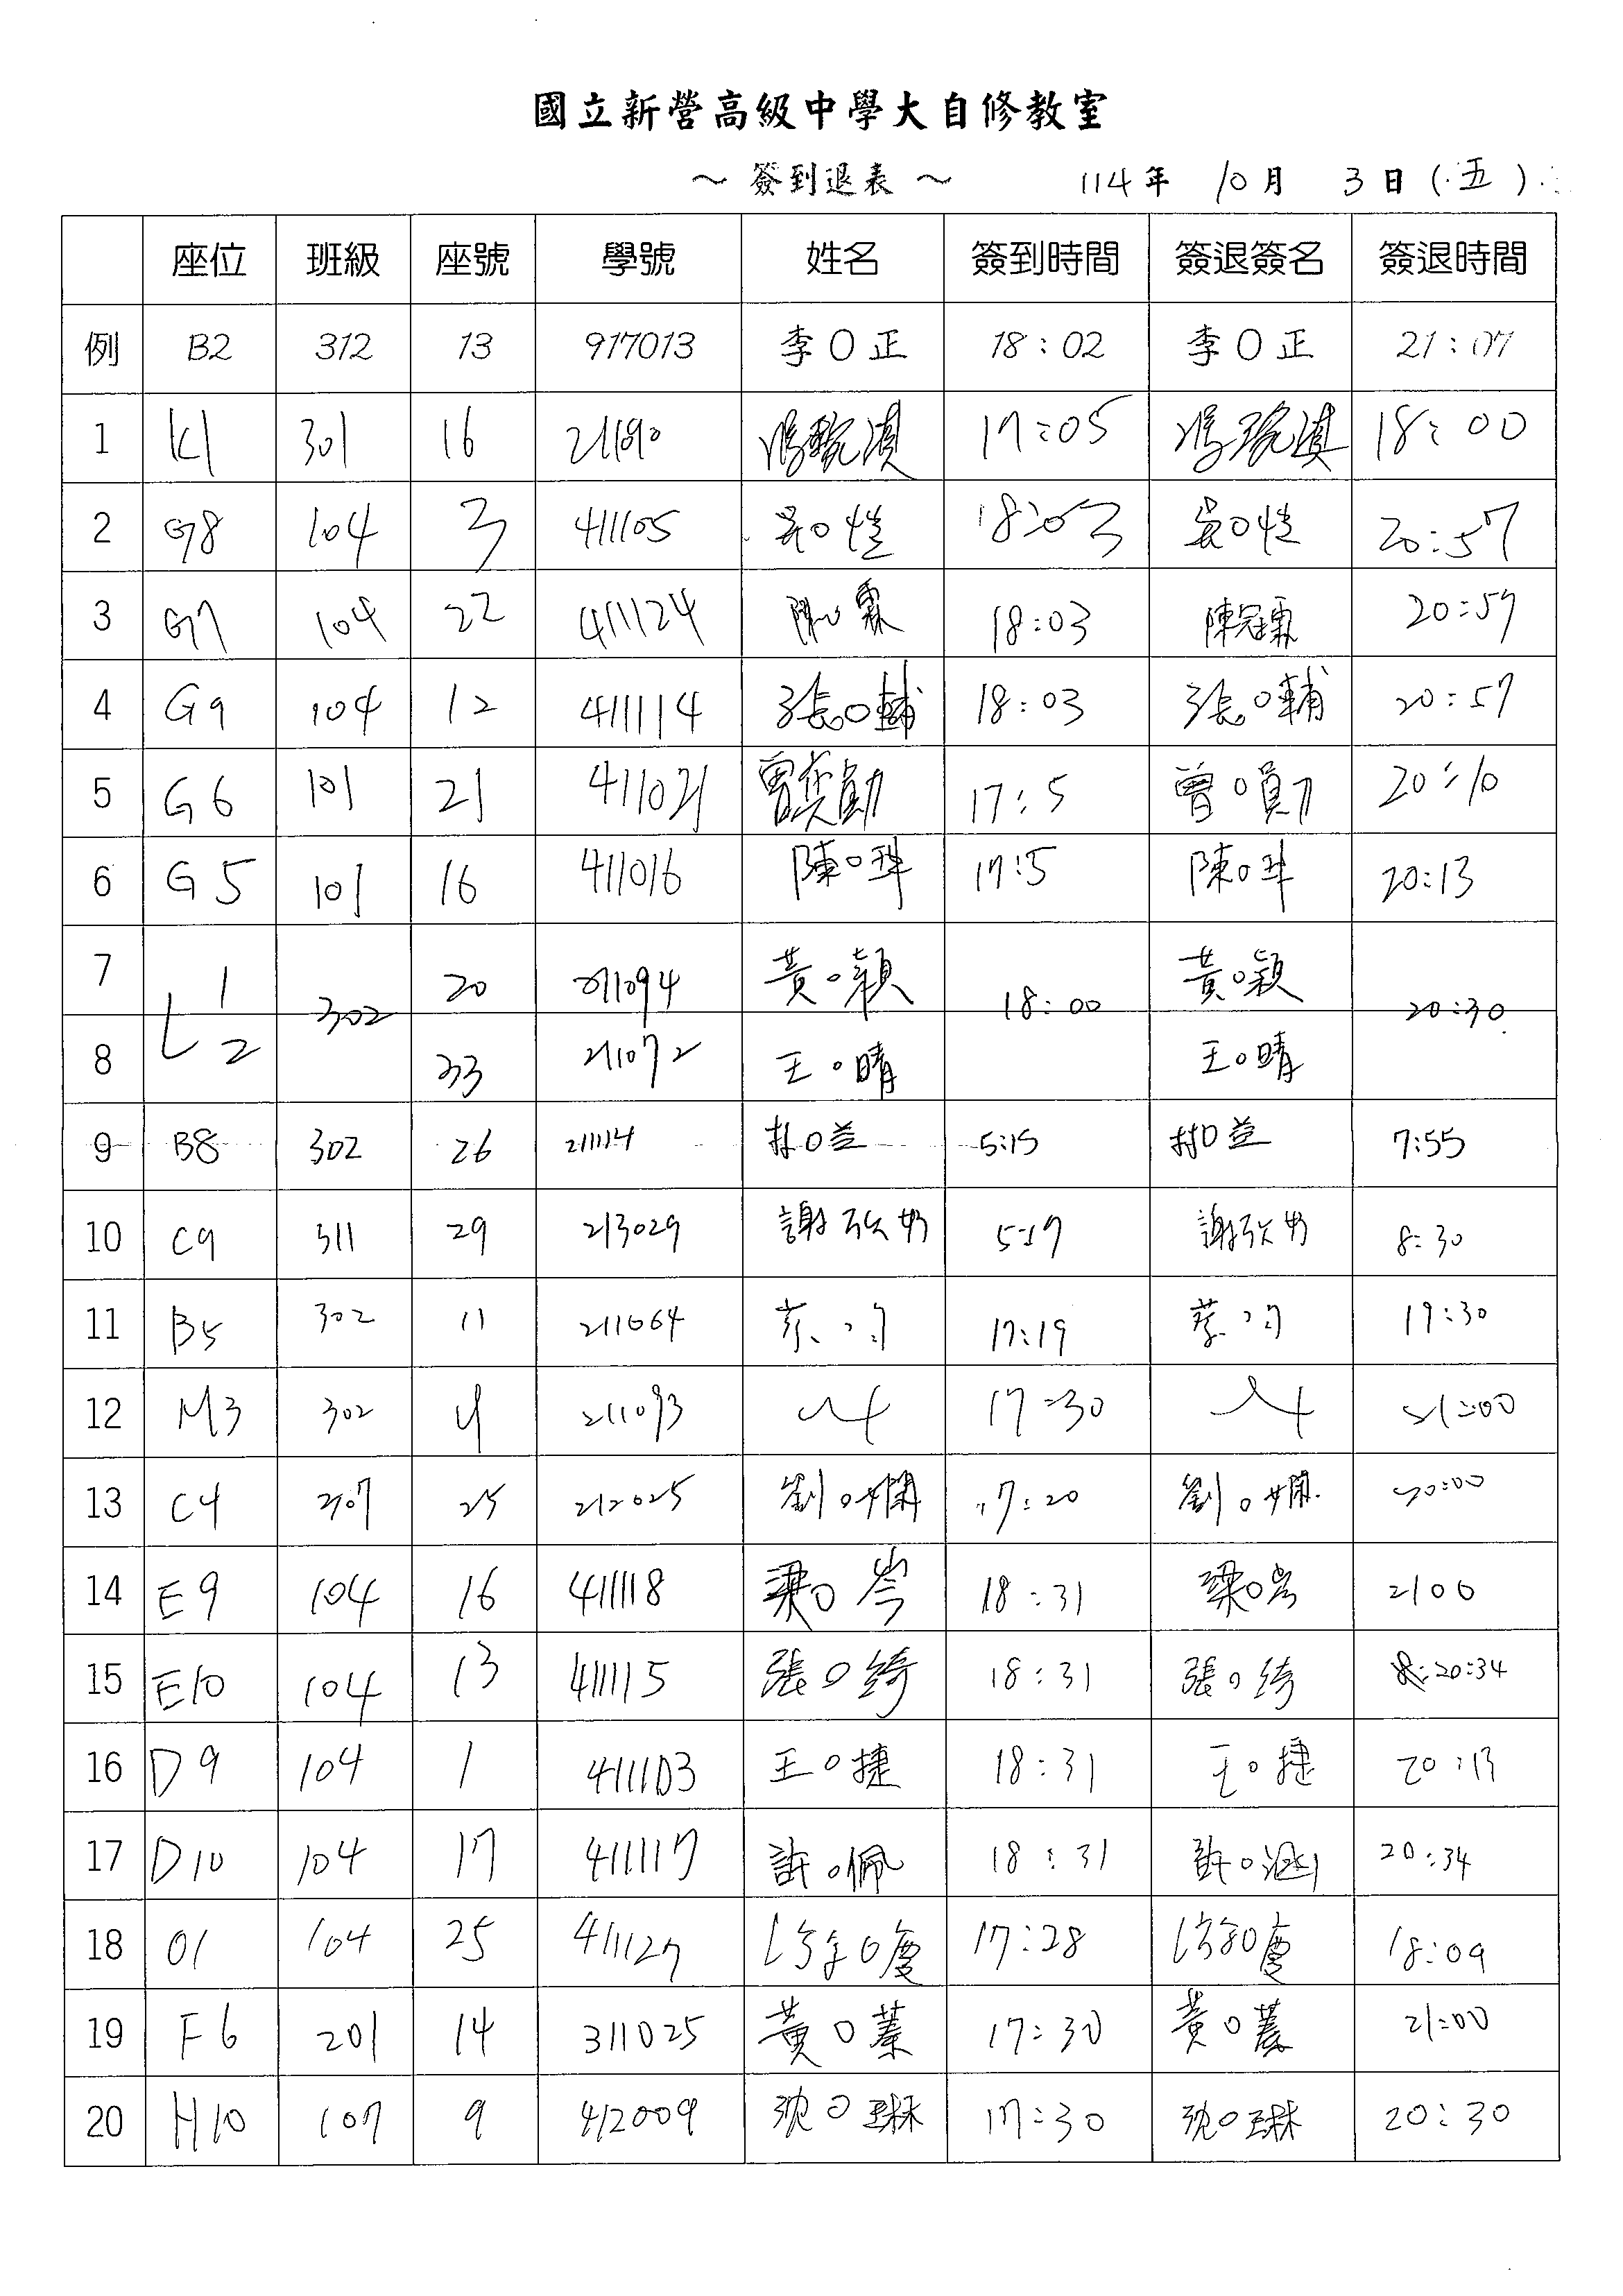 國立新營高級中學大自修教室
～ 簽到退表 ～ 114年 10月 3日(五)
座位 班級 座號 學號 姓名 簽到時間 簽退簽名 簽退時間
例 B2 312 13 917013 李O正 18:02 李O正 21:07
1 K1 301 16 211690 17:05 18:00
2 G8 104 3 411105 吳O愷 18:03 吳O愷 20:57
3 G7 104 22 411124 陳O霖 18:03 陳冠霖 20:57
4 G9 104 12 411114 張O輔 18:03 張O輔 20:57
5 G6 101 21 411021 17:5 20:10
6 G5 101 16 411016 陳O 17:5 陳O 20:13
7 L1 302 20 211094 黃O穎 18:00 黃O穎 20:30
8 2 33 211072 王O晴 王O晴
9 B8 302 26 211114 5:15 7:55
10 C9 311 29 213029 謝 5:17 謝 8:30
11 B5 302 11 211064 17:19 蔡 19:30
12 M3 302 4 211093 17:30 21:00
13 C4 307 25 212025 劉O嫻 17:20 劉O嫻 20:00
14 E9 104 16 411118 梁O岑 18:31 梁O岑 2100
15 E10 104 13 411115 張O綺 18:31 張O綺 20:34
16 D9 104 1 411103 王O捷 18:31 王O捷 20:13
17 D10 104 17 411117 許O佩 18:31 許O 20:34
18 O1 104 25 411127 徐O慶 17:28 徐O慶 18:09
19 F6 201 14 311025 黃O蓁 17:30 黃O蓁 21:00
20 H10 107 9 412009 沈O琳 17:30 沈O琳 20:30